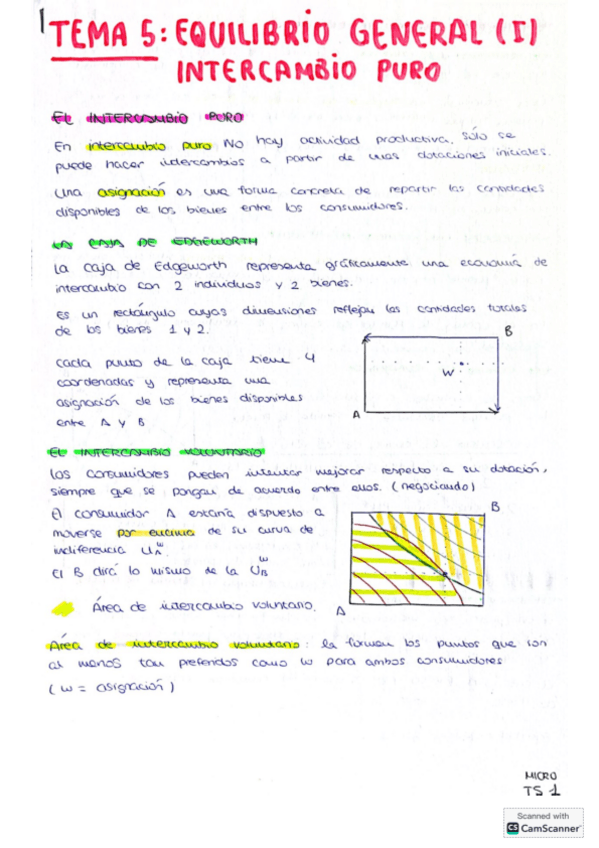 TEMA 5: EQUILIBRIO GENERAL (I)
INTERCAMBIO PURO
EL INTERCAMBIO PURO
En intercambio puro NO hay actividad productiva, sólo se
puede hacer intercambios a partir de unas dotaciones iniciales.
Una asignación es una forma concreta de repartir las cantidades
disponibles de los bienes entre los consumidores.
LA CAJA DE EDGEWORTH
La caja de Edgeworth representa gráficamente una economía de
intercambio con 2 individuos y 2 bienes.
Es un rectángulo cuyas dimensiones reflejan las cantidades totales
de los bienes 1 y 2.
B
Cada punto de la caja tiene 4
coordenadas y representa una
asignación de los bienes disponibles
entre A y B
W
A
EL INTERCAMBIO VOLUNTARIO
Los consumidores pueden intentar mejorar respecto a su dotación,
siempre que se pongan de acuerdo entre ellos. (negociando)
El consumidor A estaría dispuesto a
moverse por encima de su curva de
indiferencia U_A^w.
El B dirá lo mismo de la U_B^w
B
Área de intercambio voluntario.
A
Área de intercambio voluntario: la forman los puntos que son
al menos tan preferidos como w para ambos consumidores
(w = asignación)
MICRO
T5 1
Scanned with
CS CamScanner